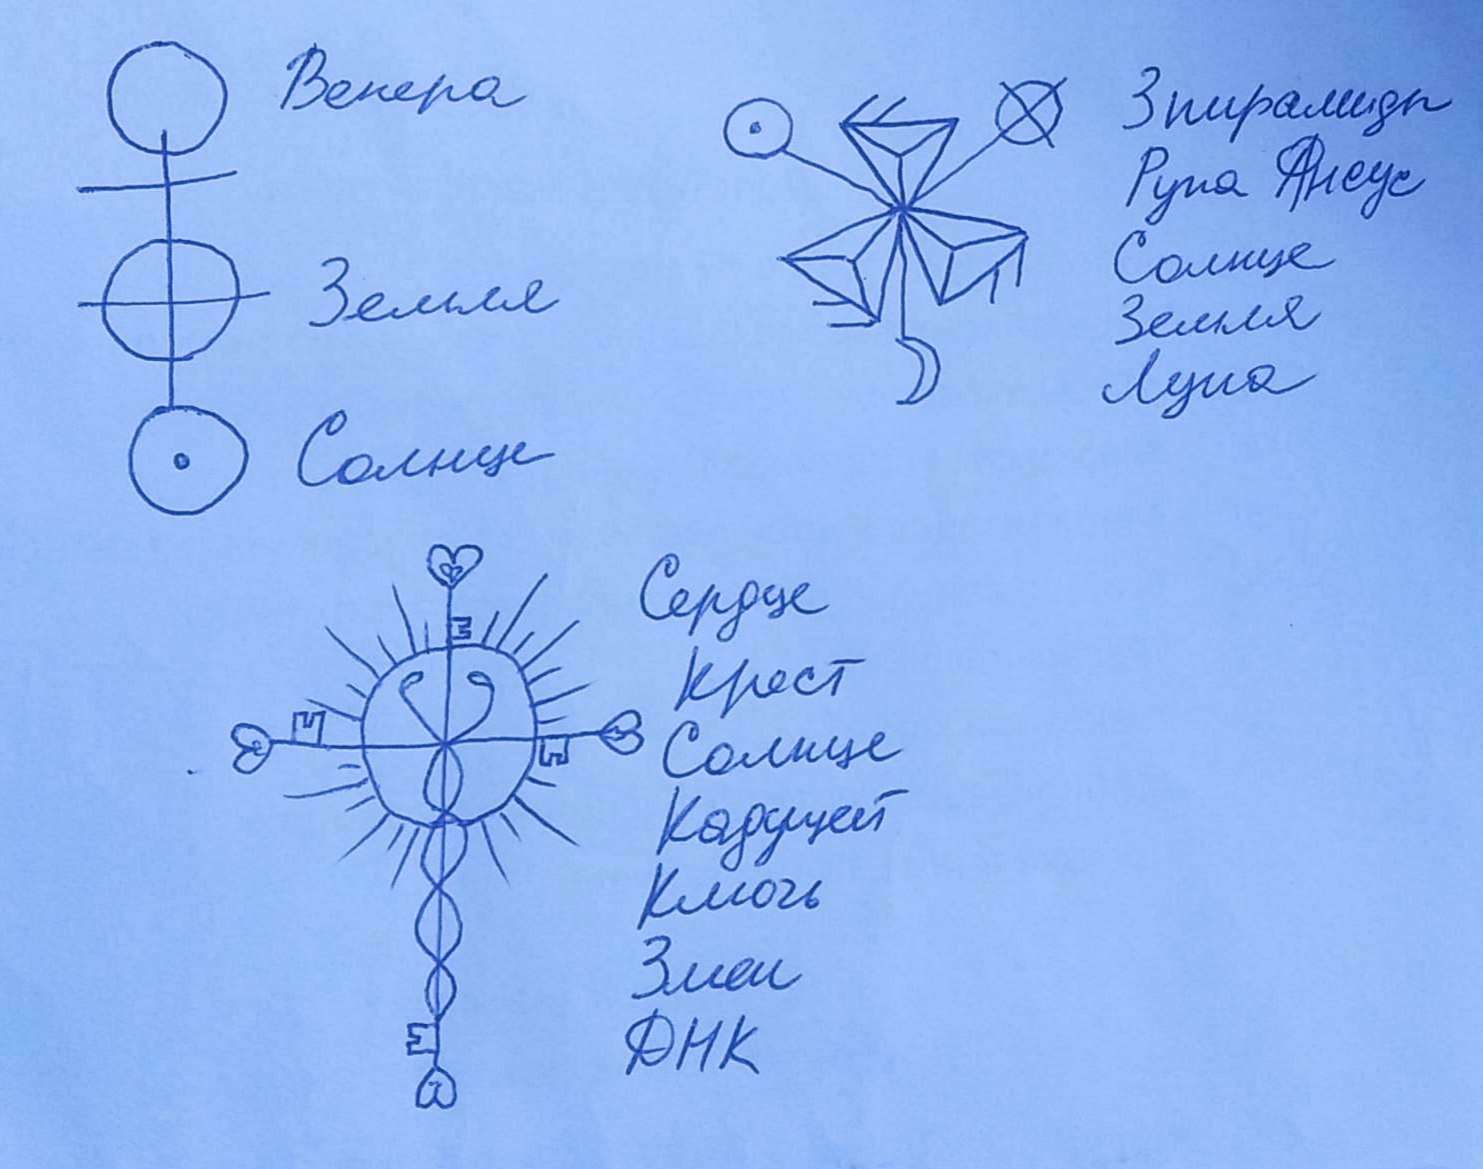 Венера
Земля
Солнце
3 пирамиды
Руна Ансус
Солнце
Земля
Луна
Сердце
Крест
Солнце
Кадуцей
Ключь
Змеи
ДНК